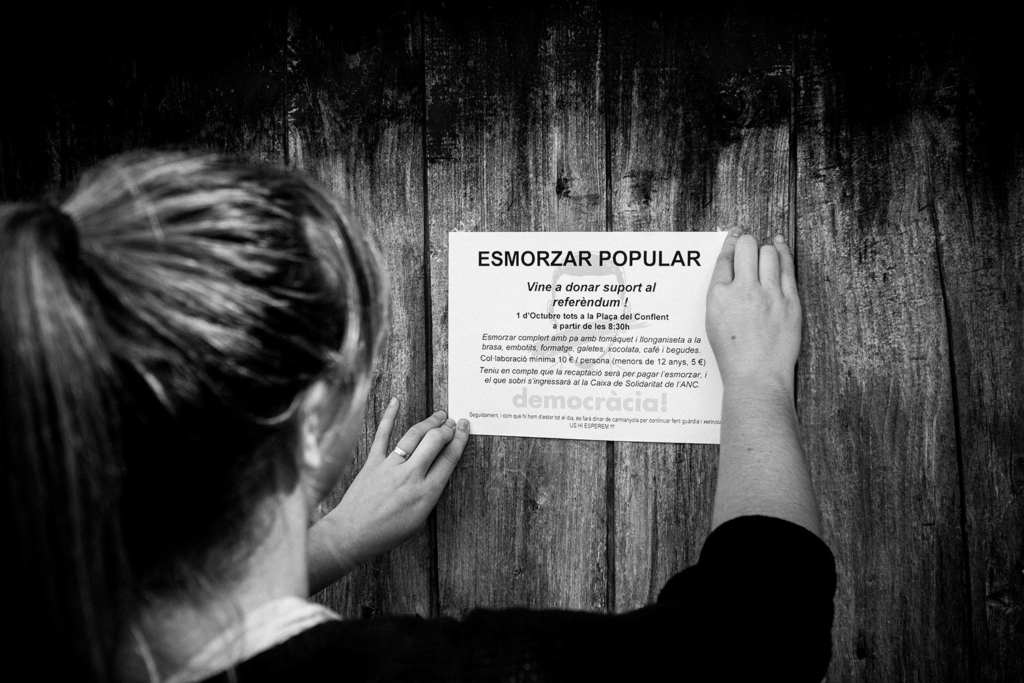 ESMORZAR POPULAR
Vine a donar suport al
referèndum !
1 d'Octubre tots a la Plaça del Conflent
a partir de les 8:30h
Esmorzar complert amb pa amb tomàquet i llonganiseta a la
brasa, embotits, formatge, galetes, xocolata, café i begudes.
Col·laboració mínima 10 € / persona (menors de 12 anys, 5 €)
Teniu en compte que la recaptació serà per pagar l'esmorzar, i
el que sobri s'ingressarà al la Caixa de Solidaritat de l'ANC.
democràcia!
Seguidament, i com que hi hem d'estar tot el dia, es farà dinar de carmanyola per continuar fent guàrdia i
US HI ESPEREM !!!